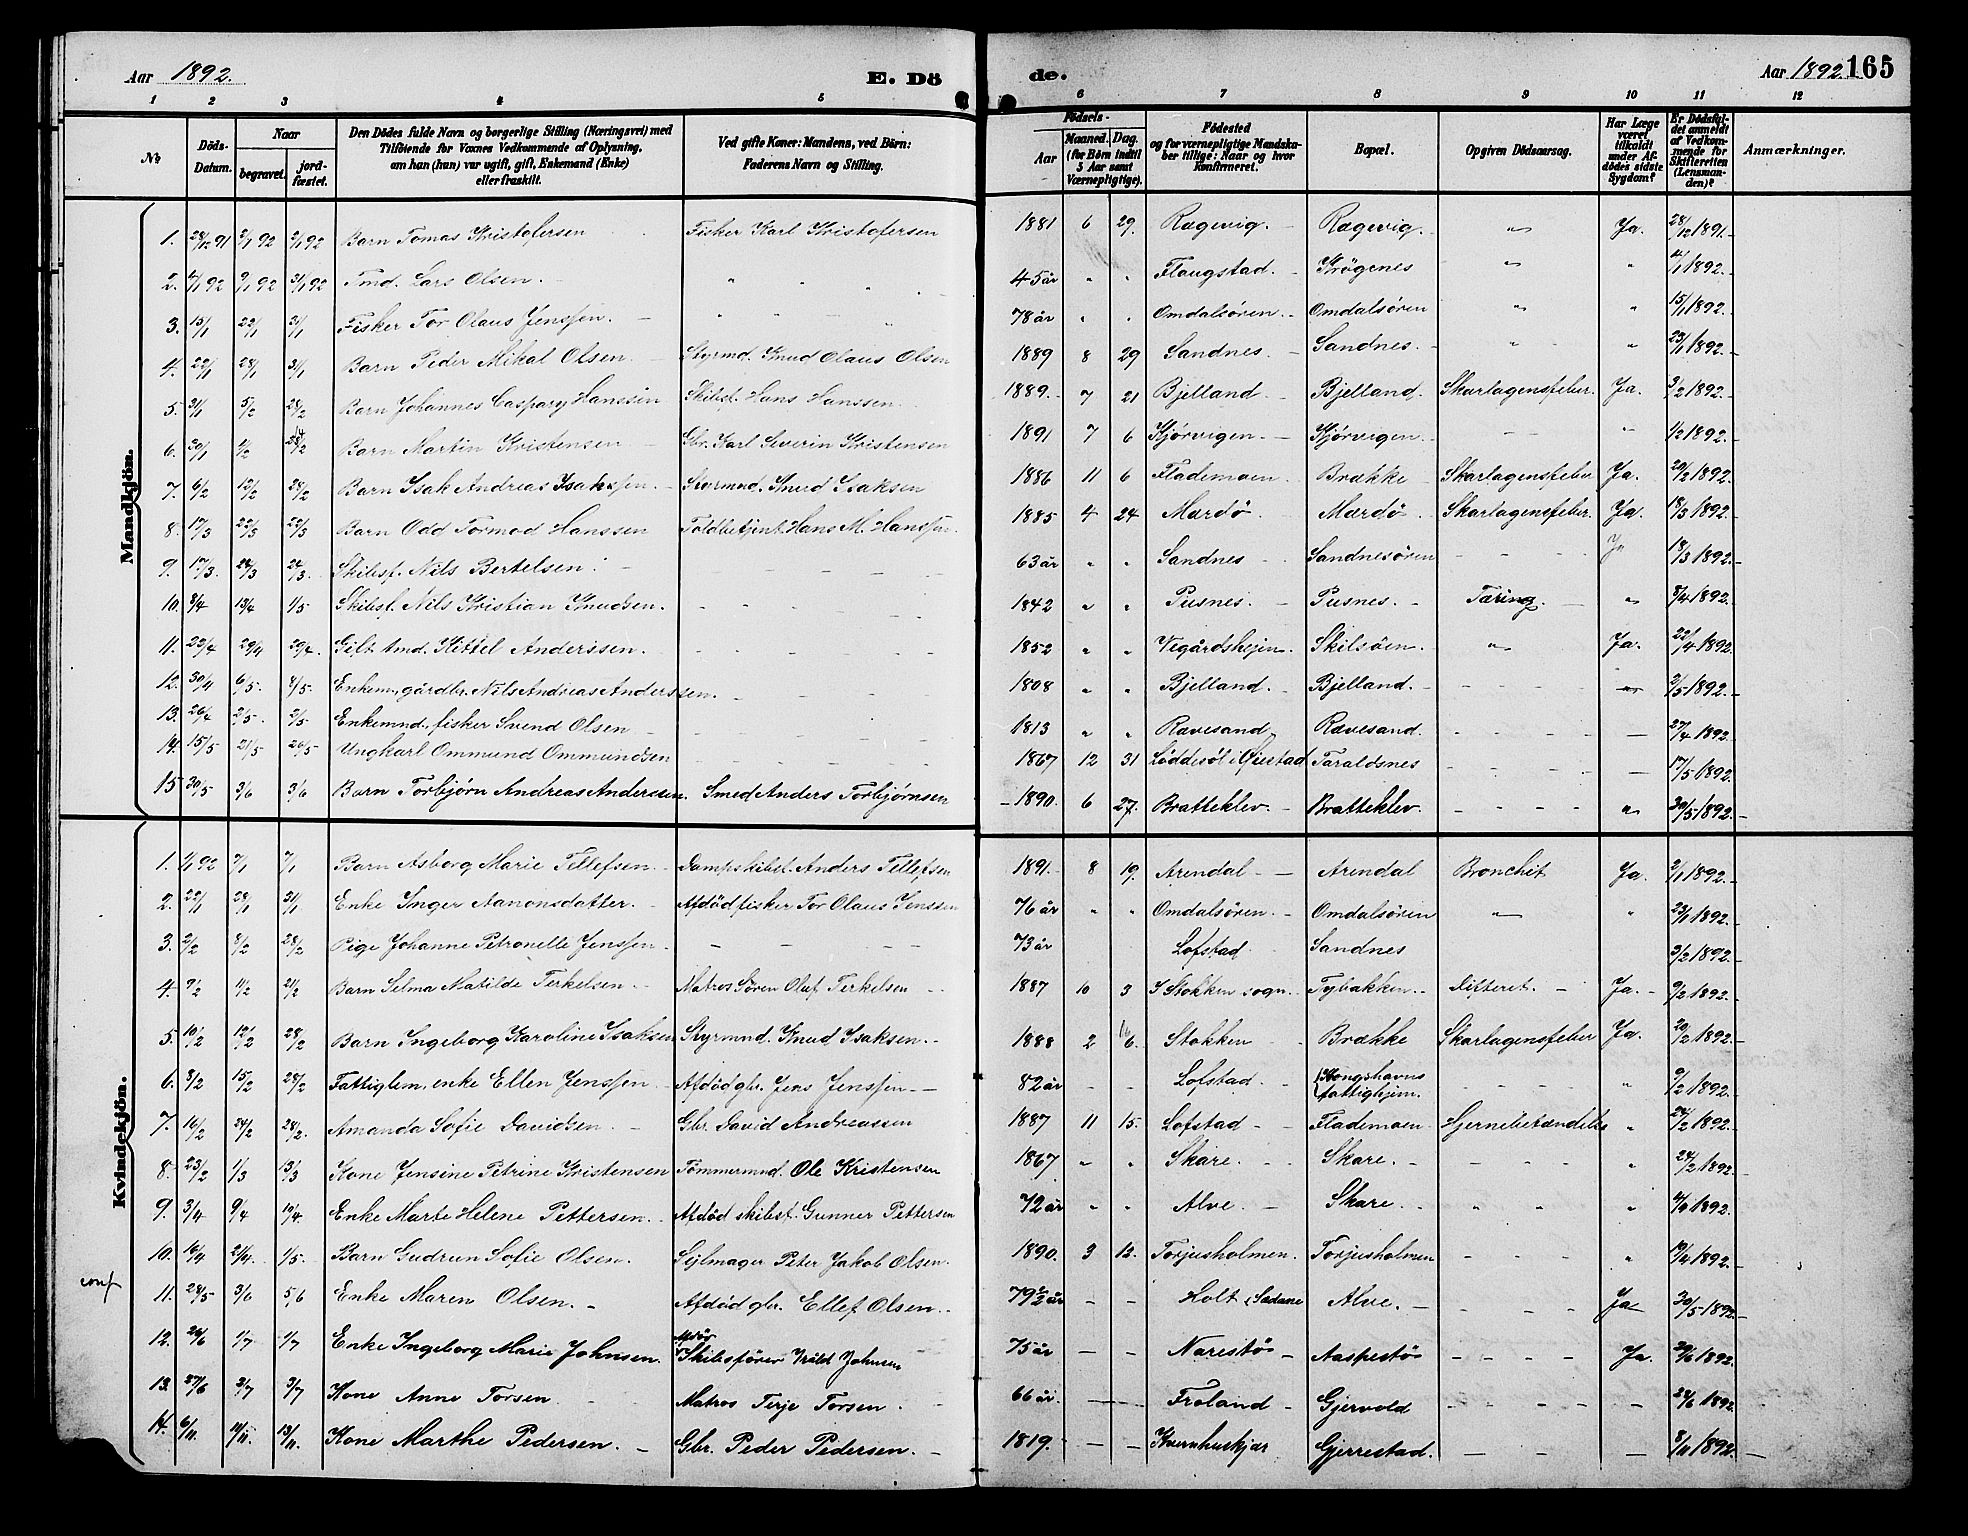 Aar 1892. E. Dö de. Aar 1892 165
1 2 3 4 5 6 7 8 9 10 11 12
No Döds-Datum. Naar begravet. jordfæstet. Den Dödes fulde Navn og borgerlige Stilling (Næringsvei) med Tilföiende for Voxnes Vedkommende af Oplysning, om han (hun) var ugift, gift, Enkemand (Enke) eller fraskilt. Ved gifte Koner: Mandens, ved Börn: Faderens Navn og Stilling. Födsels- Aar Maaned. Dag. (for Börn indtil 5 Aar samt Værnepligtige). Födested og for værnepligtige Mandskaber tillige: Naar og hvor Konfirmeret. Bopæl. Opgiven Dödsaarsag. Har Læge været tilkaldt under Afdödes sidste Sygdom? Er Dödsfaldet anmeldt af Vedkommende for Skifteretten (Lensmanden)? Anmærkninger.
Mandkjön.
1. 28/12 91 2/1 92 2/1 92 Barn Tomas Kristofersen Fisker Karl Kristofersen 1881 6 29. Rægevig. Rægevig. " Ja. 28/12 1891.
2. 4/1 92 9/1 92 31/1 92 Tmd. Lars Olsen. " 45 år " " Flaugstad. Krögenes " " 4/1 1892.
3. 15/1 22/1 31/1 Fisker Tor Olaus Jenssen. " 78 år " " Omdalsören. Omdalsören " " 15/1 1892.
4. 22/1 28/1 31/1 Barn Peder Mikal Olsen. Styrmd. Knud Olaus Olsen 1889 8 29 Sandnes. Sandnes. " " 23/1 1892.
5. 31/1 5/2 28/2 Barn Johannes Caspary Hanssen Skibsf. Hans Hanssen. 1889. 7 21 Bjelland. Bjelland. Skarlagensfeber. Ja. 3/2 1892.
6. 30/1 1/2 14/2 Barn Martin Kristensen Gbr. Karl Severin Kristensen 1891 7 6 Kjörvigen. Kjörvigen. - - " 1/2 1892.
7. 6/2 12/2 28/2 Barn Isak Andreas Isaksen. Styrmnd. Knud Isaksen 1886 11 6 Flademoen. Brække Skarlagensfeber Ja. 20/2 1892.
8. 17/3 22/3 22/3 Barn Odd Tormod Hanssen Toldbetjent Hans M. Hanssen. 1885 4 24 Mærdö Mærdö Skarlagensfeber. Ja. 18/3 1892.
9. 17/3. 24/3 24/3. Skibsf. Nils Bertelsen. 63 år " " Sandnes Sandnesören Ja 18/3 1892.
10. 8/4 13/4 1/5 Skibsf. Nils Kristian Knudsen. 1842 " " Pusnes. Pusnes. Tæring. " 8/4 1892.
11. 22/4 29/4 29/4. Gift tmd. Kittel Anderssen. 1852 " " Vegårdshejen. Skilsöen. " Ja. 22/4 1892.
12. 30/4 6/5. 8/5. Enkem., gårdbr. Nils Andreas Anderssen. 1808 " " Bjelland. Bjelland. 2/5 1892.
13. 26/4 2/5. 2/5 Enkemnd., fisker Svend Olsen 1813 " " Ravesand. Rævesand. 27/4 1892.
14. 15/5 21/5 26/5 Ungkarl Ommund Ommundsen 1867 12 31 Löddesöl i Øiestad Taraldsnes 17/5 1892.
15 30/5 3/6 3/6 Barn Torbjørn Andreas Anderssen. Smed Anders Torbjørnsen 1890. 6 27. Bratteklev. Bratteklev. " 30/5 1892.
Kvindekjön.
1. 1/1 92 7/1 7/1 Barn Asborg Marie Tellefsen. Dampskibsf. Anders Tellefsen 1891. 8 19. Arendal Arendal Bronchit Ja. 2/1 1892.
2. 22/1 28/1 31/1 Enke Inger Aanonsdatter. Afdöd fisker Tor Olaus Jenssen 76 år " " Omdalsören. Omdalsören " " 23/1 1892.
3. 2/2 8/2 28/2 Pige Johanne Petronelle Jenssen. 73 år Lofstad Sandnes 3/2 1892.
4. 9/2 11/2 21/2 Barn Selma Matilde Terkelsen. Matros Sören Oluf Terkelsen 1887 10 3 I Stokken sogn. Tybakken. Difteret. Ja. 9/2 1892.
5. 10/2 12/2 28/2 Barn Ingeborg Karoline Isaksen Styrmnd. Knud Isaksen. 1888 2 16. Stokken Brække Skarlagensfeber Ja. 20/2 1892.
6. 8/2 15/2 28/2 Fattiglem, enke Ellen Jenssen. Afdöd gbr. Jens Jenssen 82 år Lofstad. Kongshavns fattighjem. " 9/2 1892.
7. 16/2 24/2 28/2. Amanda Sofie Davidsen Gbr. David Andreassen 1887 11 15. Lofstad Flademoen Hjernebetændelse " 24/2 1892.
8. 23/2 1/3 13/3 Kone Jensine Petrine Kristensen Tömmermnd. Ole Kristensen 1867 " " Skare. Skare. " 24/2 1892.
9. 3/4 9/4 10/4. Enke Marte Helene Pettersen. Afdöd skibsf. Gunner Pettersen 72 år " " Alve. Skare. " " 4/4 1892.
10. 16/4 21/4. 1/5. Barn Gudrun Sofie Olsen. Sejlmager Peter Jakob Olsen. 1890. 3 12. Torjusholmen. Torjusholmen " 19/4 1892.
conf
11. 28/5 3/6 5/6 Enke Maren Olsen. Afdöd gbr. Ellef Olsen. Holt Alve. Ja 30/5 1892.
12. 28/6 1/7 1/7 Enke Ingeborg Marie Johnsen. Skibsförer Johnsen 75 år Narestö Aaspestö Ja. 29/6 1892.
13. 27/6 2/7 3/7 Kone Anne Torsen. Matros Terje Torsen. 66 år Froland Gjervold 28/6 1892.
14. 6/11 11/11. 13/11. Kone Marthe Pedersen. Gbr. Peder Pedersen. 1819. Kvernhuskjær Gjerrestad. 8/11 1892.